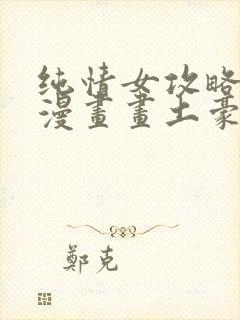 纯情女攻略
漫畫畫土豪
鄭克